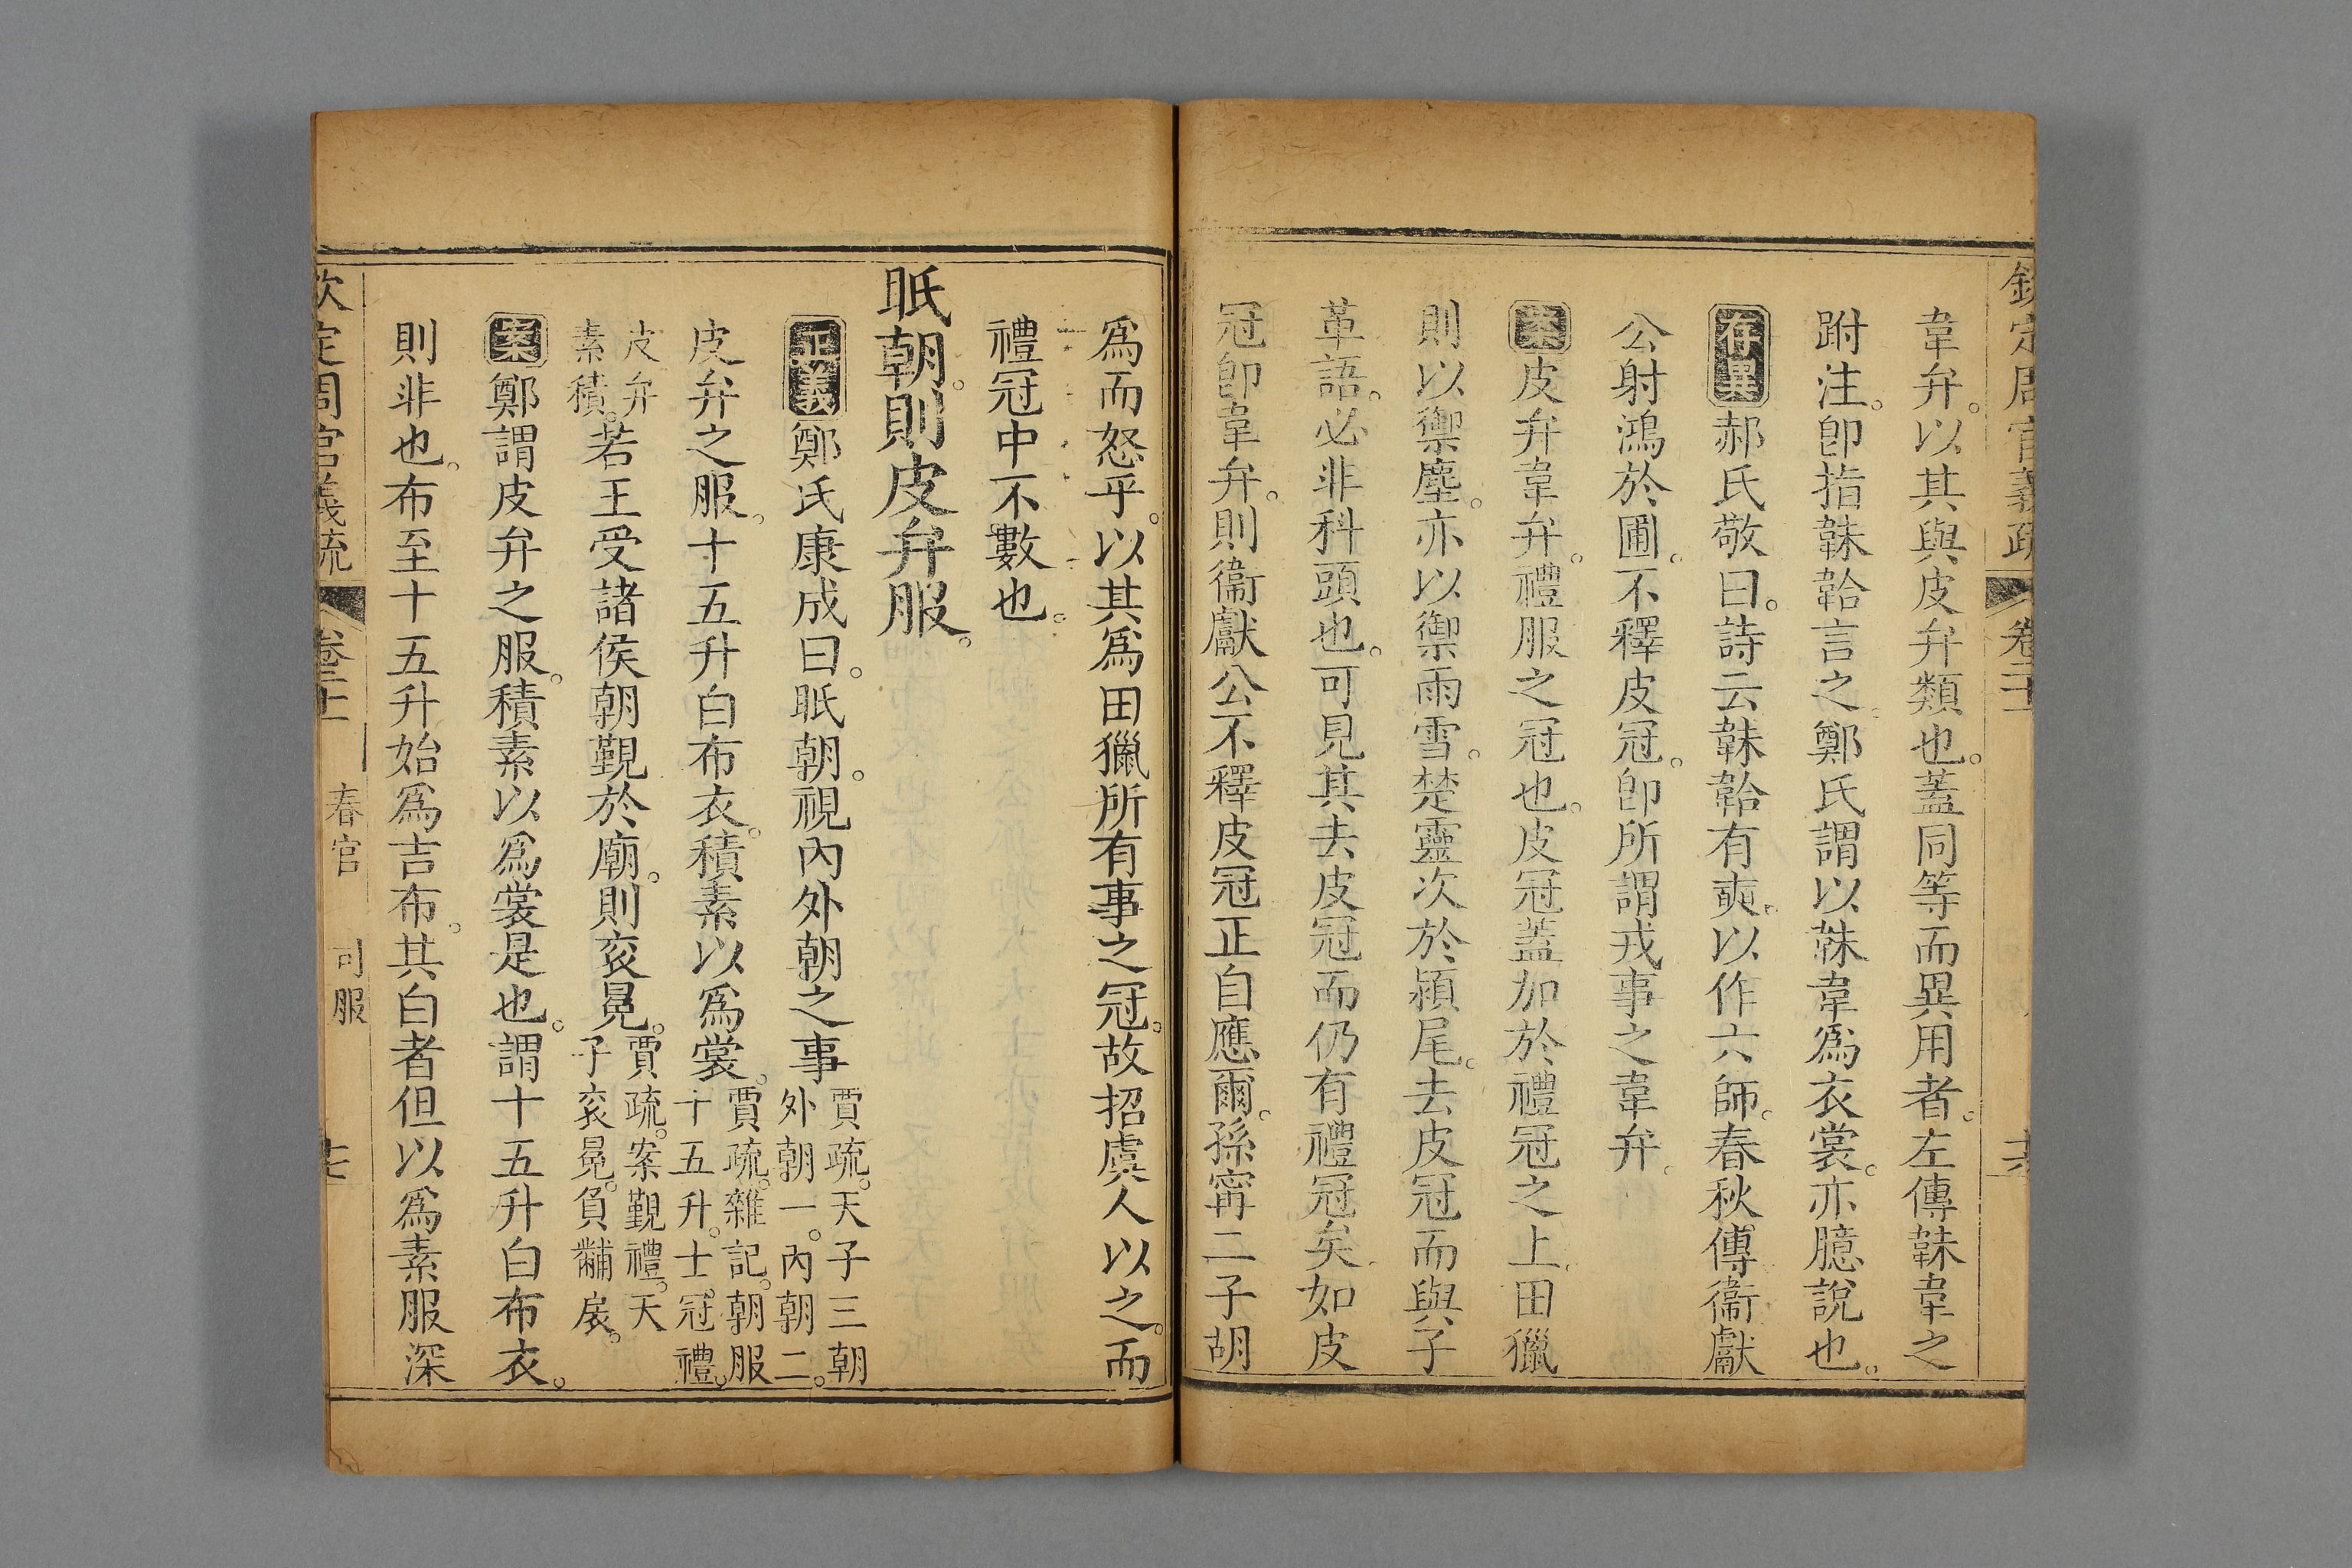 欽定周官義疏 卷二十一 十六
韋弁。以其與皮弁類也。蓋同等而異用者。左傳韎韋之
跗注。卽指韎韐言之。鄭氏謂以韎韋爲衣裳。亦臆說也。
存異郝氏敬曰。詩云韎韐有奭。以作六師。春秋傳衞獻
公射鴻於圃。不釋皮冠。卽所謂戎事之韋弁。
案皮弁韋弁。禮服之冠也。皮冠蓋加於禮冠之上。田獵
則以禦塵。亦以禦雨雪。楚靈次於潁尾。去皮冠而與子
革語。必非科頭也。可見其去皮冠而仍有禮冠矣。如皮
冠卽韋弁。則衞獻公不釋皮冠正自應爾。孫甯二子胡
爲而怒乎。以其爲田獵所有事之冠。故招虞人以之。而
禮冠中不數也。
眂朝。則皮弁服。
正義鄭氏康成曰。眂朝。視內外朝之事賈疏。天子三朝外朝一。內朝二。
皮弁之服。十五升白布衣。積素以爲裳。賈疏。雜記。朝服十五升。士冠禮。
皮弁素積。若王受諸侯朝覲於廟。則衮冕。賈疏。案覲禮。天子衮冕。負黼扆。
案鄭謂皮弁之服。積素以爲裳是也。謂十五升白布衣。
則非也。布至十五升始爲吉布。其白者但以爲素服深
欽定周官義疏 卷二十一 春官 司服 十七